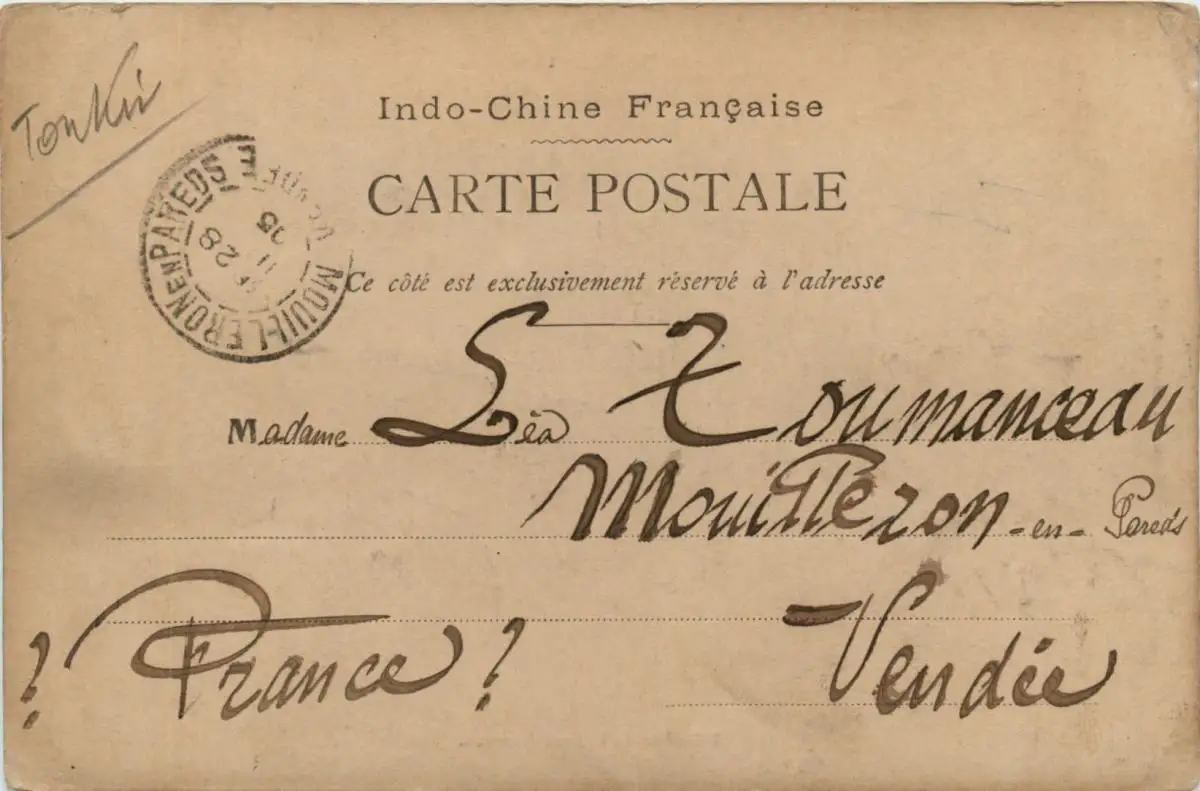 Tonkin
Indo-Chine Française
CARTE POSTALE
Ce côté est exclusivement réservé à l'adresse
MOUILLERON EN PAREDS
VENDÉE
28
05
Madame Léa Toumanceau
Mouilleron-en-Pareds
? France ? Vendée